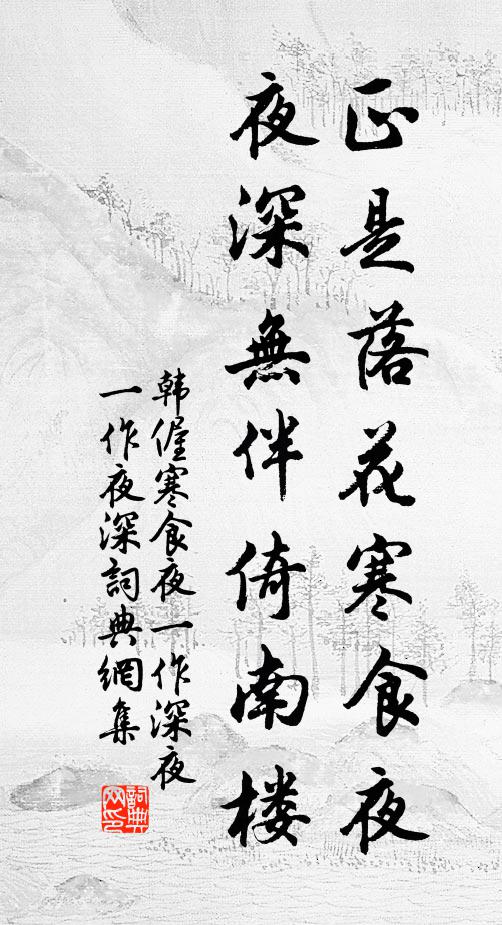 正是落花寒食夜
夜深無伴倚南楼
韩偓寒食夜一作深夜
一作夜深詞典網集